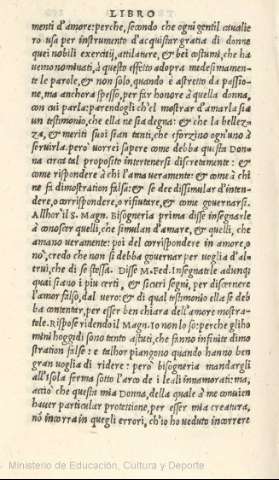 LIBRO
menti d'amore: perche, secondo che ogni gentil cavalie
ro usa per instrumento d'acquistar gratia di donne
quei nobili exercitii, attilature, & bei costumi, che ha
vemo nominati, à questo effetto adopra medesimamen-
te le parole, & non solo, quando è astretto da passio-
ne, ma anchora spesso, per far honore à quella donna,
con cui parla: parendogli ch'el mostrar d'amarla sia
un testimonio, che ella ne sia degna: & che la bellez-
za, & meriti suoi sian tanti, che sforzino ogn'uno à
servirla. però vorrei sapere come debba questa Don
na circa tal proposito intertenersi discretamente: &
come rispondere à chi l'ama veramente: & come à chi
ne fa dimostration falsa: & se dee dissimular d'inten-
dere, o corrispondere, o rifiutare, & come governarsi.
Allhor il S. Magn. Bisogneria prima disse insegnarle
à conoscer quelli, che simulan d'amare, & quelli, che
amano veramente: poi del corrispondere in amore, o
no', credo che non si debba governar per voglia d'al-
trui, che di se stessa. Disse M. Fed. Insegnatele adunq;
quai siano i piu certi, & sicuri segni, per discernere
l'amor falso, dal vero: & di qual testimonio ella se deb
ba contentar, per esser ben chiara dell'amore mostra-
tole. Rispose ridendo il Magn. Io non lo so: perche gli ho
mini hoggidì sono tanto astuti, che fanno infinite dimo
stration false: e talhor piangono quando hanno ben
gran voglia di ridere: però bisogneria mandargli
all'Isola ferma sotto l'arco de i leali innamorati: ma,
acciò che questa mia Donna, della quale à me convien
haver particular protettione, per esser mia creatura,
nō incorra in quegli errori, ch'io ho veduto incorrere
Ministerio de Educación, Cultura y Deporte